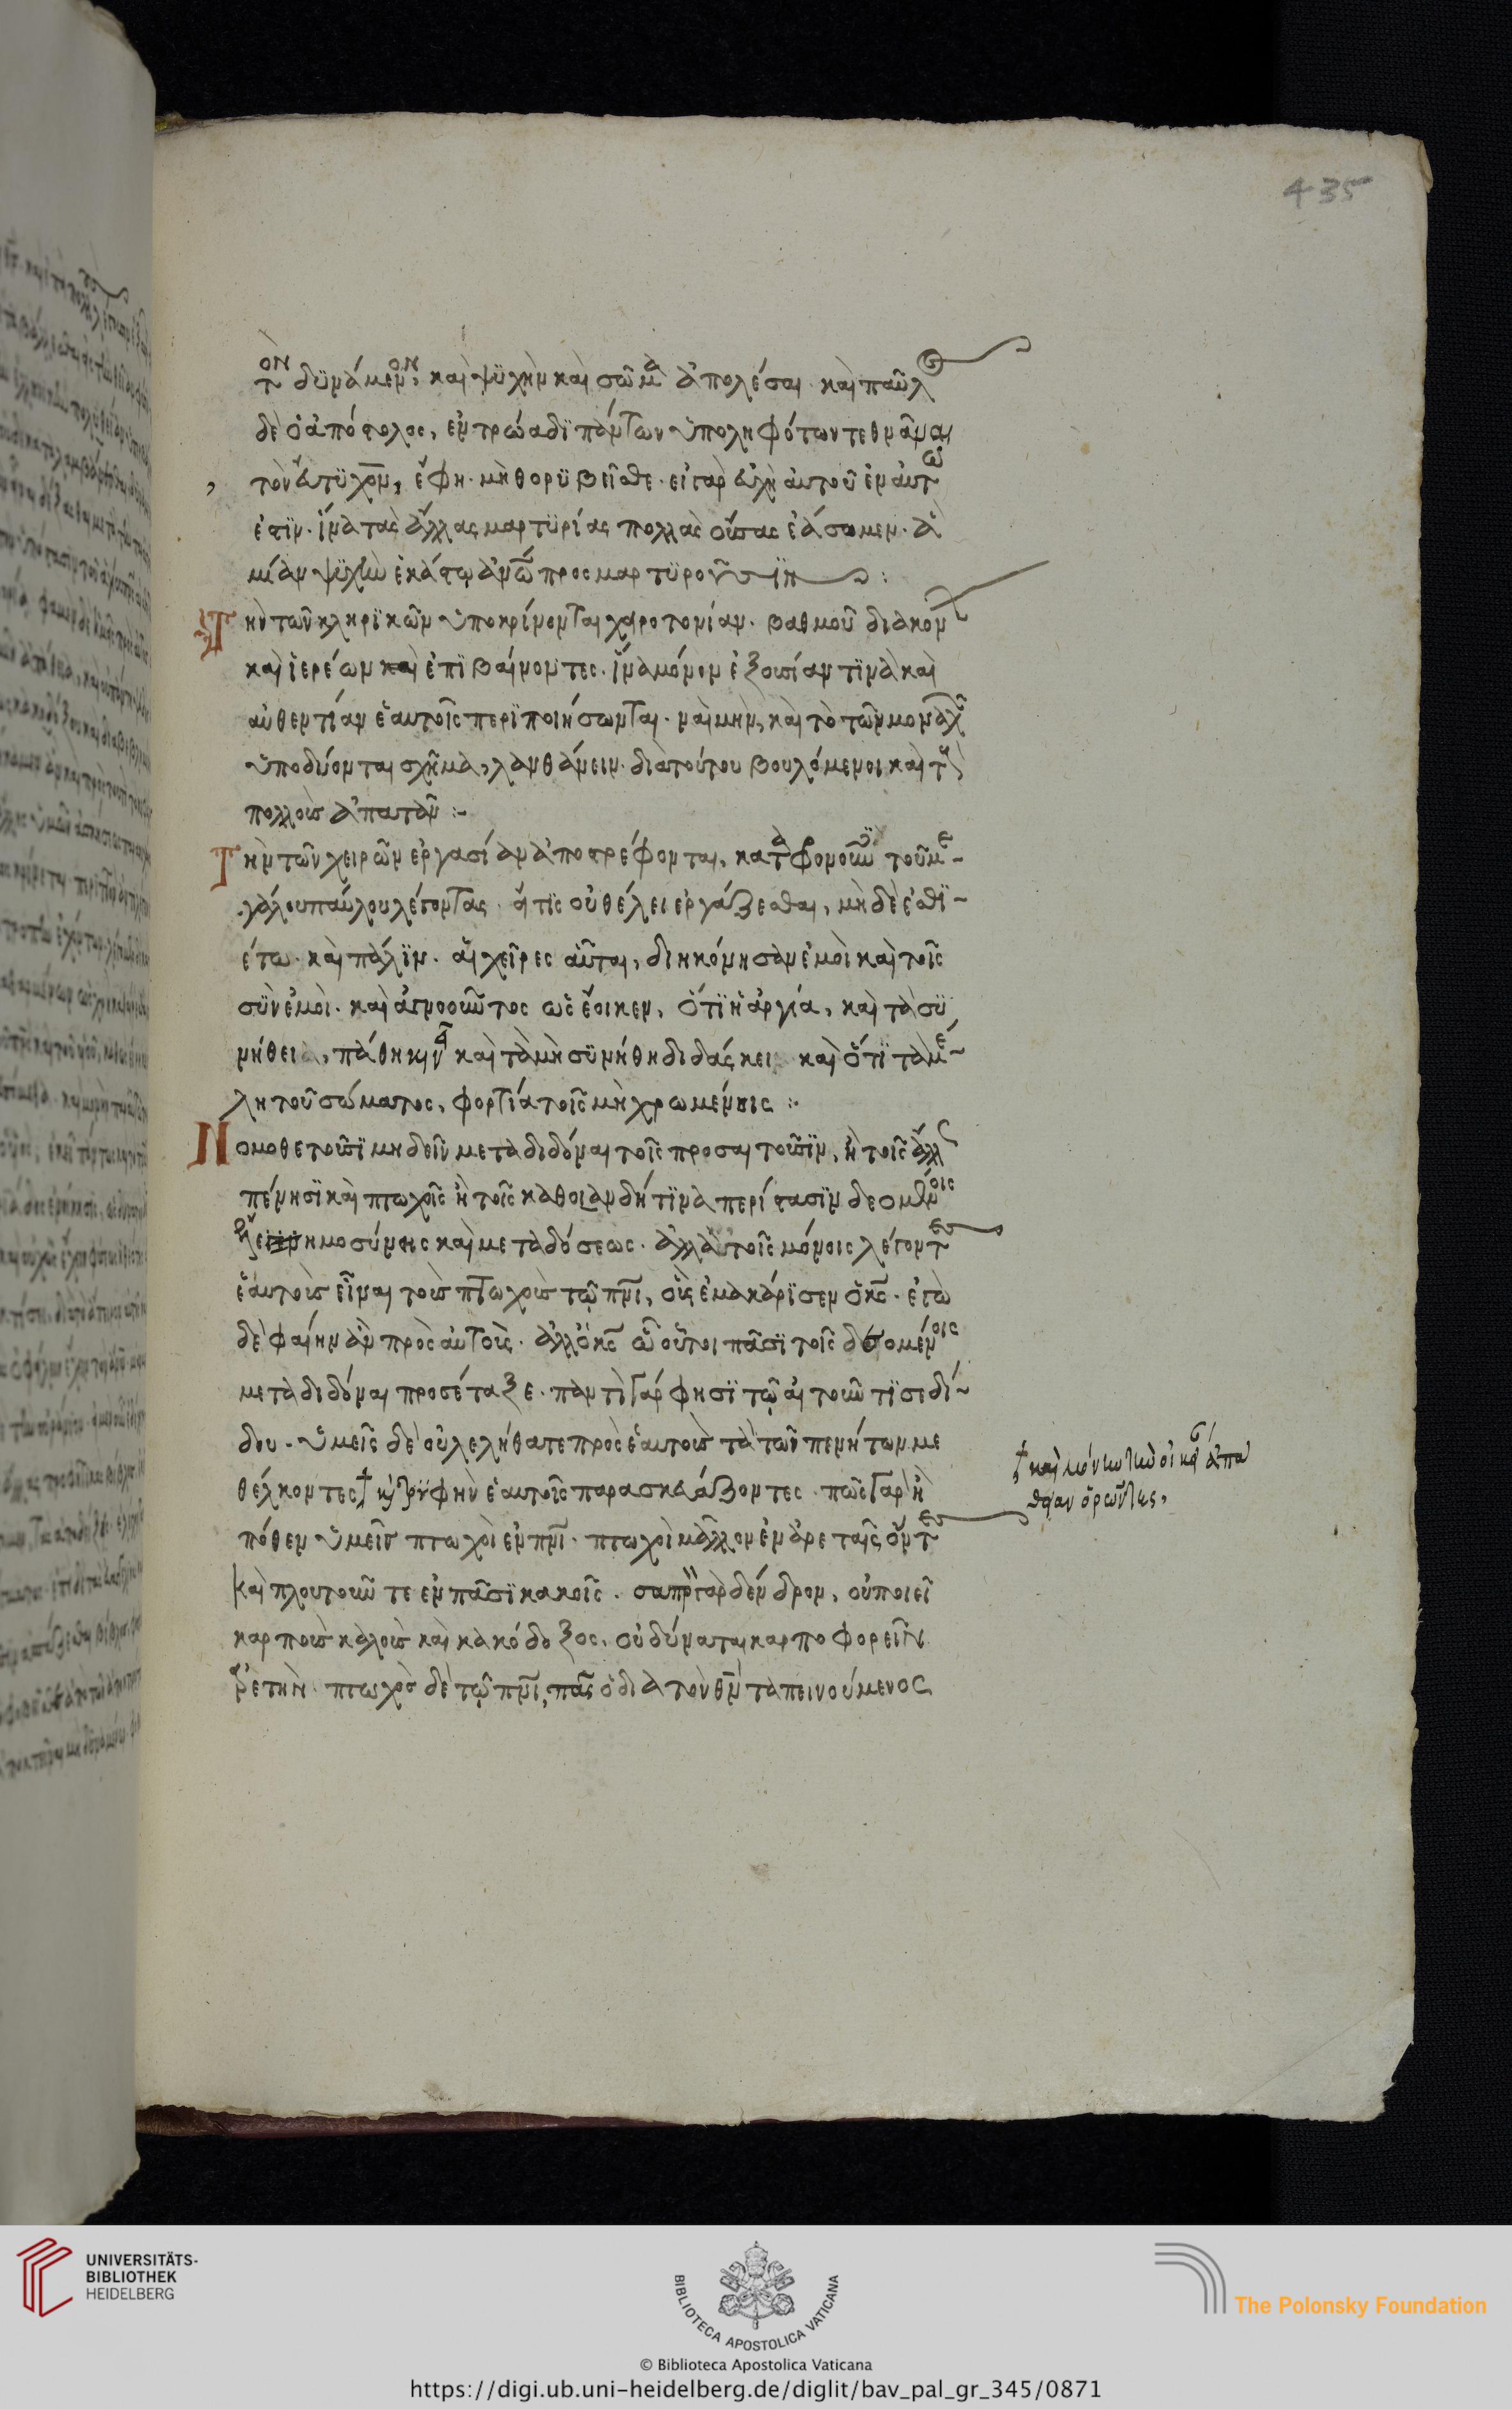 435
τὸν δυνάμενον, καὶ ψυχὴν καὶ σῶμα ἀπολέσαι καὶ παῦλος
δὲ ὁ ἀπόστολος, ἐν τρωάδϊ πάντων ὑποληφότων τεθνᾶναι
τὸν εὔτϋχον, ἔφη. μὴ θορϋβεῖσθε. εἰ γὰρ ψυχὴ αὐτοῦ ἐν αὐτῶ
ἐστϊν. ἵνα τὰς ἄλλας μαρτϋρίας πολλὰς οὔσας ἐάσωμεν. αἳ
μίαν ψϋχὴν ἑκάστω ἀνῶν προσμαρτϋροῦσϊν :
Τὴν τῶν κληρϊκῶν ὑποκρίνονται χειροτονίαν. βαθμοῦ διακόν
καὶ ἱερέων καὶ ἐπϊβαίνοντες. ἵνα μόνον ἐξουσίαν τϊνὰ καὶ
αὐθεντίαν ἑαυτοῖς περϊποιήσωνται. ναὶ μὴν, καὶ τὸ τῶν μοναχῶν
ὑποδύονται σχῆμα, λανθάνειν. διὰ τούτου βουλόμενοι καὶ τοὺς
πολλοὺς ἀπατᾶν :-
Τὴν τῶν χειρῶν ἐργασίαν ἀποστρέφονται, καταφρονοῦν τοῦ με-
γάλου παύλου λέγοντος. εἴ τϊς οὐ θέλει ἐργάζεσθαι, μὴ δὲ ἐσθϊ-
έτω. καὶ πάλϊν. αἱ χεῖρες αὗται, διηκόνησαν ἐμοὶ καὶ τοῖς
σϋν ἐμοὶ. καὶ ἀγνοοῦντος ὡς ἔοικεν, ὅτϊ ἡ ἀργία, καὶ τὰ σϋ
νήθει πάθη κινεῖ καὶ τὰ μὴ σϋνήθη διδάσκει καὶ ὅτϊ τὰ μέ-
λη τοῦ σώματος, φορτία τοῖς μὴ χρωμένοις :-
Νομοθετοῦσϊ μὴ δεῖν μεταδιδόναι τοῖς προσαιτοῦσϊν, ἢ τοῖς ἄλλ
πένησϊ καὶ πτωχοῖς ἢ τοῖς καθοιανδήτϊνα περίστασϊν δεομένοις
ἐλεημοσύνης καὶ μεταδόσεως. ἀλλ' αὐτοῖς μόνοις λέγοντες
ἑαυτοὺς εἶναι τοὺς πτωχοὺς τῶ πνι, οὓς ἐμακάρϊσεν ὁ κς. ἐγὼ
δὲ φαίην ἂν πρὸς αὐτοὺς. ἀλλ' ὁ κς ὦ οὗτοι πᾶσϊ τοῖς δεομένοις
μεταδιδόναι προσέταξε. παντὶ γάρ φησϊ τῶ αἰτοῦντϊ σε δί-
δου. ὑμεῖς δὲ οὐ λελήθατε πρὸς ἑαυτοὺς τὰ τῶν πενήτων με
θέλκοντες καὶ τρϋφὴν ἑαυτοῖς παρασκευάζοντες. πῶς γὰρ ἢ
πόθεν ὑμεῖς πτωχοὶ ἐν πνι. πτωχοὶ μᾶλλον ἐν ἀρεταῖς ὄντες
καὶ πλουτοῦντε ἐν πᾶσϊ κακοῖς. σαπρὸν γὰρ δένδρον, οὐ ποιεῖ
καρποὺς καλοὺς καὶ κακόδοξος, οὐ δύναται καρποφορεῖν
ἀρετὴν πτωχὸς δὲ τῶ πνι, πᾶς ὁ διὰ τὸν θν ταπεινούμενος
UNIVERSITÄTS-
BIBLIOTHEK
HEIDELBERG
BIBLIOTECA APOSTOLICA VATICANA
The Polonsky Foundation
© Biblioteca Apostolica Vaticana
https://digi.ub.uni-heidelberg.de/diglit/bav_pal_gr_345/0871